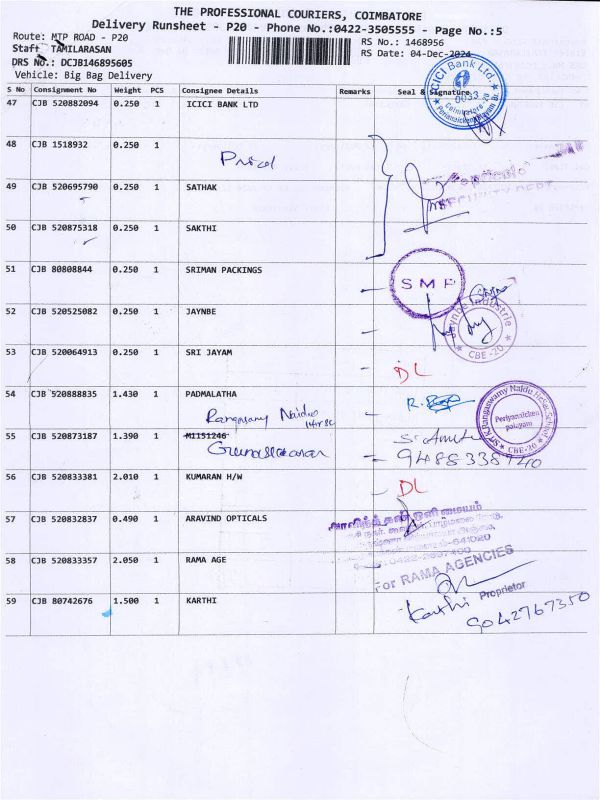 THE PROFESSIONAL COURIERS, COIMBATORE
Delivery Runsheet - P20 - Phone No.:0422-3505555 - Page No.:5
Route: MTP ROAD - P20
RS No.: 1468956
Staff TAMILARASAN
RS Date: 04-Dec-2024
DRS No.: DCJB146895605
Vehicle: Big Bag Delivery
S No Consignment No Weight PCS Consignee Details Remarks Seal & Signature
ICICI Bank Ltd.
0033
Coimbatore-20
47 CJB 520882094 0.250 1 ICICI BANK LTD
48 CJB 1518932 0.250 1
Pricol
SECURITY DEPT.
49 CJB 520695790 0.250 1 SATHAK
50 CJB 520875318 0.250 1 SAKTHI
51 CJB 80808844 0.250 1 SRIMAN PACKINGS
SMP
52 CJB 520525082 0.250 1 JAYNBE
Jaynbe Industrie
CBE-20
53 CJB 520064913 0.250 1 SRI JAYAM
DL
54 CJB 520888835 1.430 1 PADMALATHA
Rangasamy Naidu
Periyanaicken
palayam
CBE-20
55 CJB 520873187 1.390 1 M1151246
Gunasekaran
56 CJB 520833381 2.010 1 KUMARAN H/W
DL
57 CJB 520832837 0.490 1 ARAVIND OPTICALS
அரவிந்த் கண் ஒளி மையம்
58 CJB 520833357 2.050 1 RAMA AGE
For RAMA AGENCIES
Proprietor
59 CJB 80742676 1.500 1 KARTHI
Karthi
9042767350